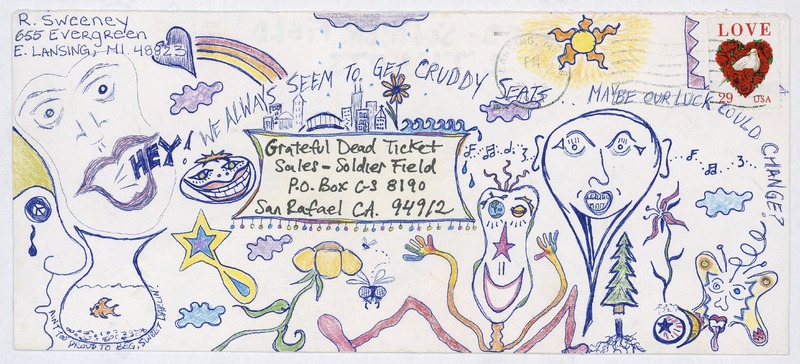 R. Sweeney
655 Evergreen
E. LANSING, MI. 48823
HEY! WE ALWAYS SEEM TO GET CRUDDY SEATS... MAYBE OUR LUCK COULD CHANGE?
LOVE
29 USA
Grateful Dead Ticket
Sales - Soldier Field
P.O. Box C-S 8190
San Rafael CA. 94912
AIN'T TOO PROUD TO BEG, SWEET